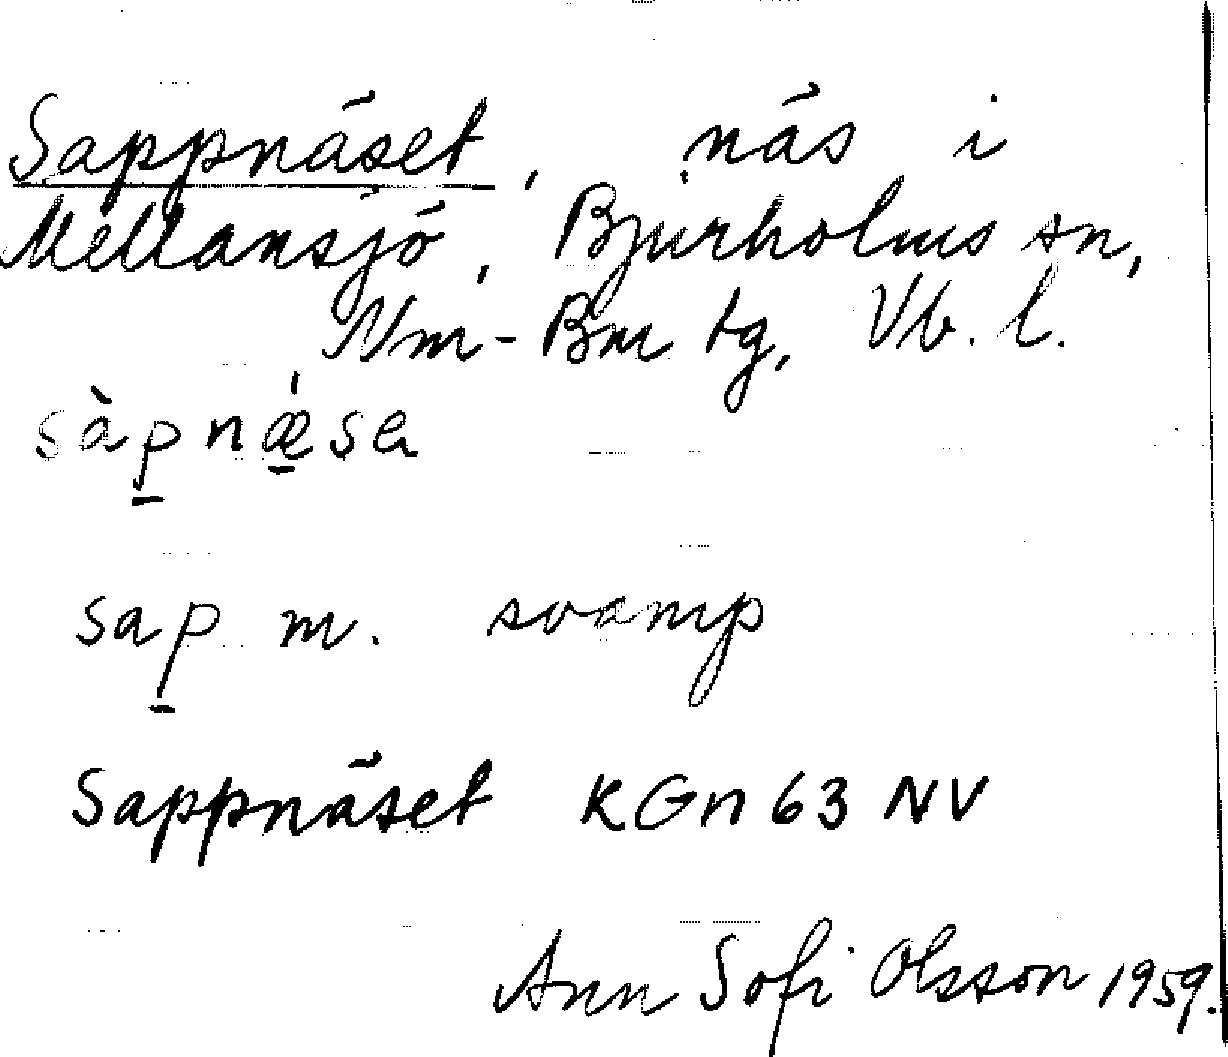 Sappnäset, näs i
Mellansjö, Bjurholms sn,
Nm-Bm tg, Vb. l.
sàp̠nǽ̠sa
sap̠ m. svamp
Sappnäset KGn 63 NV
Ann Sofi Olsson 1959.